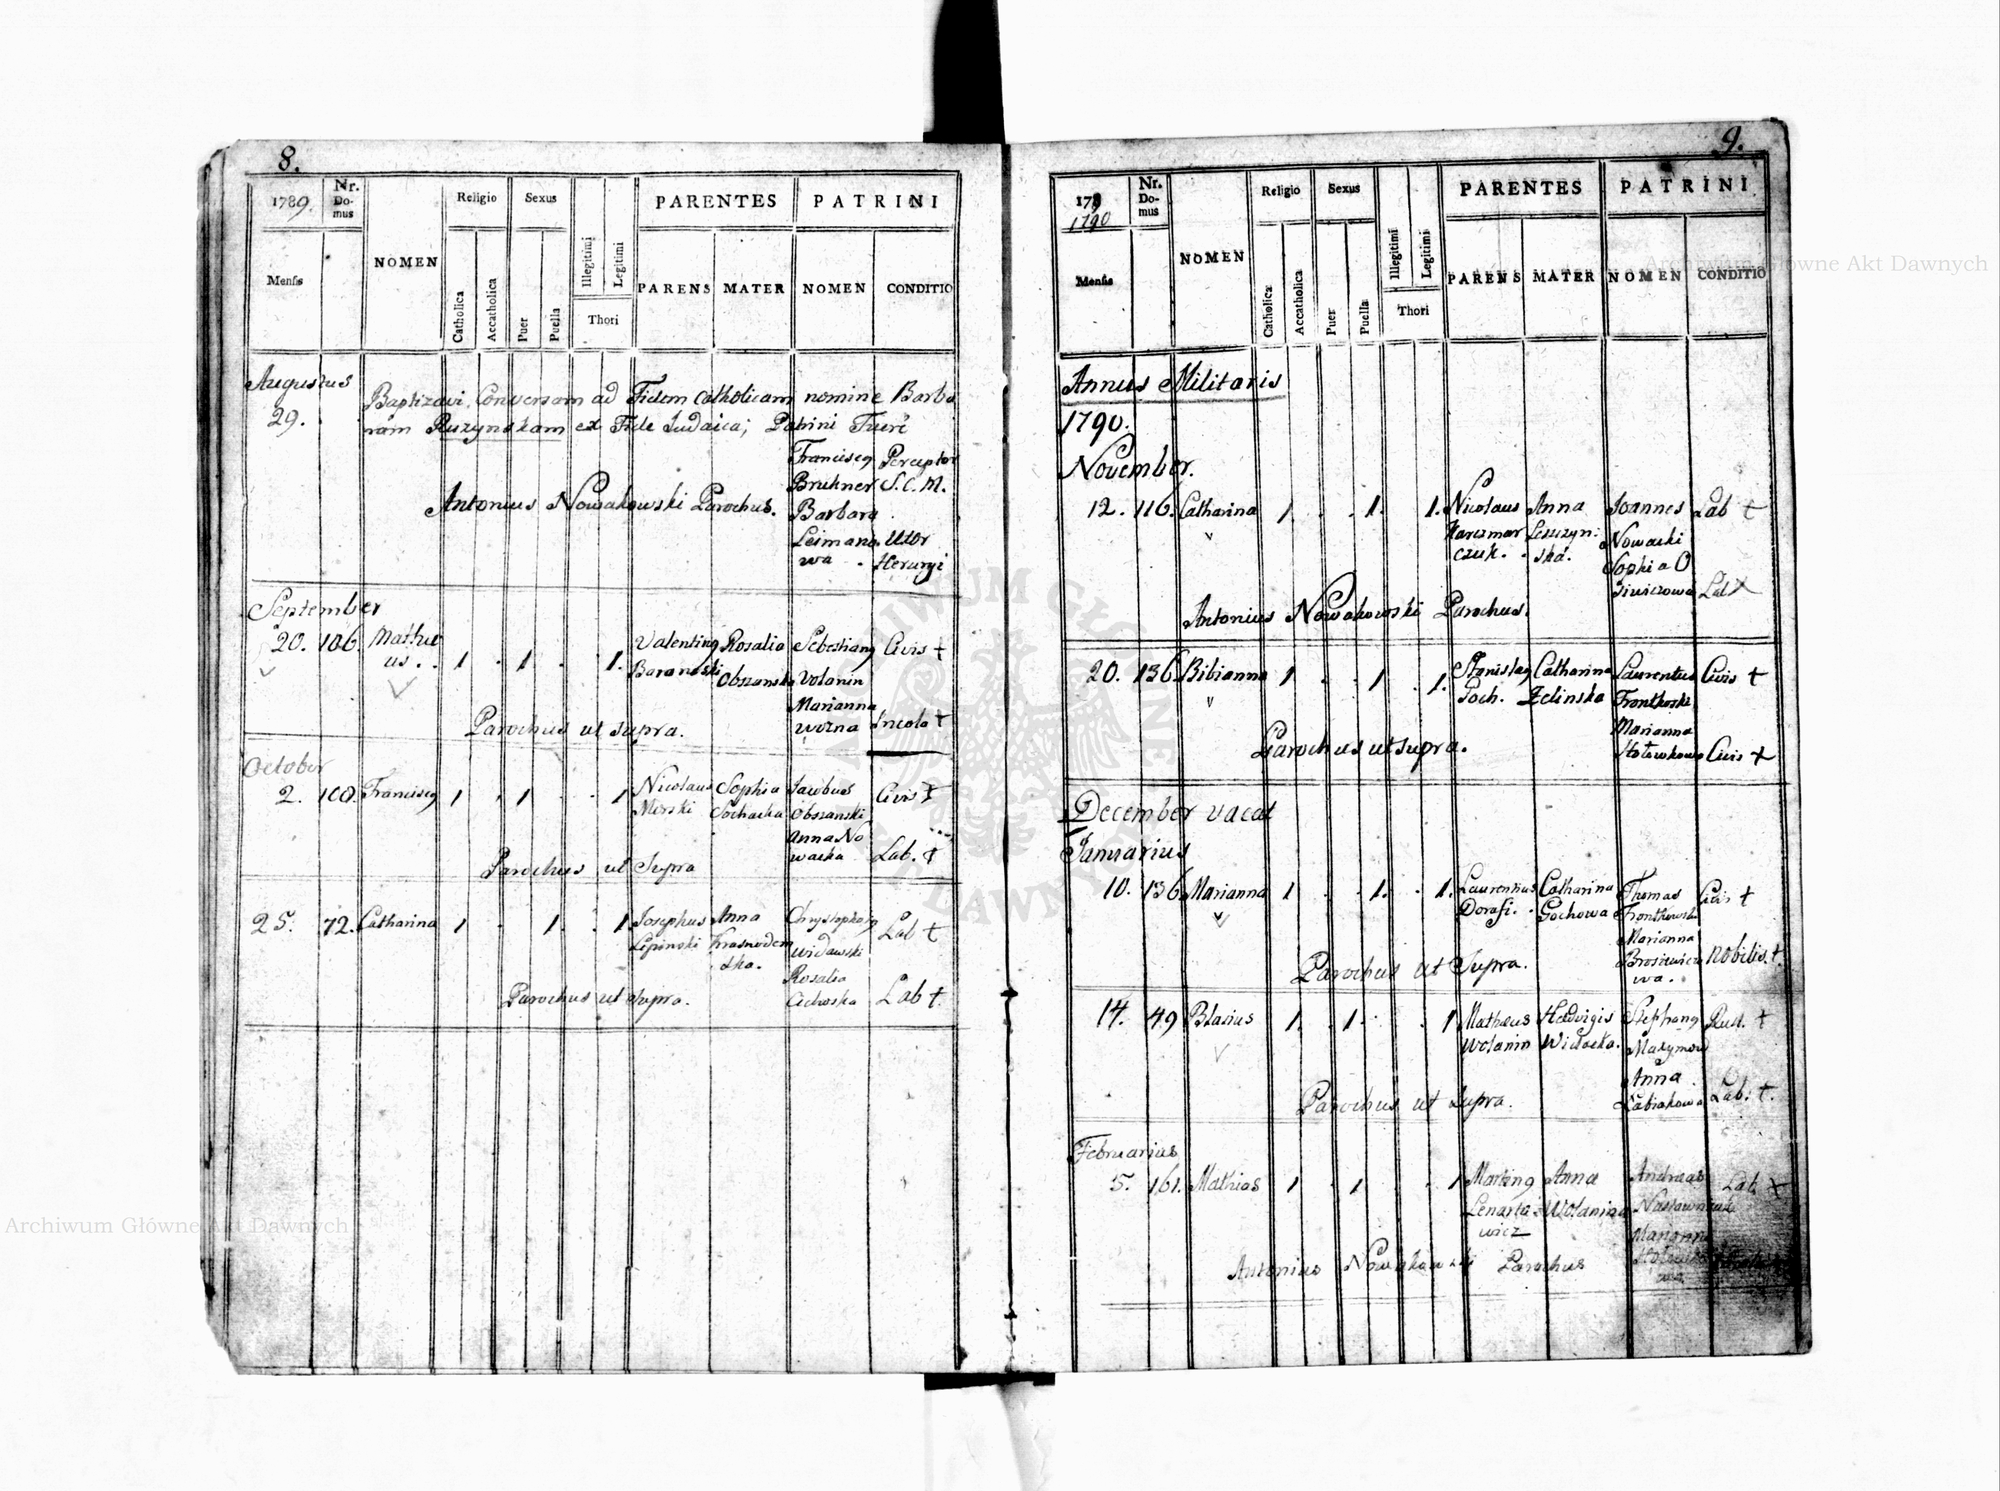 8.
1789.
Nr. Domus
NOMEN
Religio
Sexus
Illegitimi
Legitimi
PARENTES
PATRINI
Mensis
Catholica
Accatholica
Puer
Puella
Thori
PARENS
MATER
NOMEN
CONDITIO
Augustus
29.
Baptizavi Conversam ad Fidem Catholicam nomine Barba
ram Ruzynskam ex Fide Judaica; Patrini Fuere
Francisc9 Perceptor
Brukner S. C. M.
Antonius Nowakowski Parochus.
Barbara
Leimano Uxor
wa
September
20. 106. Mathe Valentin9 Rosalia Sebestian9 Civis †
us . . 1 . 1 . . 1. Baranoski Obszanska Wolanin
Marianna
Parochus ut supra. Wozna Incola †
October
2. 108. Francisc9 1 . 1 . . 1 Nicolaus Sophia Jacobus Civis †
Merski Sochacka Obszanski
Anna No
Parochus ut Supra wacka Lab. †
25. 72. Catharina 1 . . 1 . 1 Josephus Anna Chrystophor9 Lab †
Lipinski Krasnodem Widawski
ska. Rosalia
Parochus ut Supra. Cichoska Lab †.
9.
178
1790
Nr. Domus
NOMEN
Religio
Sexus
Illegitimi
Legitimi
PARENTES
PATRINI
Mensis
Catholica
Accatholica
Puer
Puella
Thori
PARENS
MATER
NOMEN
CONDITIO
Annus Militaris
1790.
November.
12. 116. Catharina 1 . . 1. 1. Nicolaus Anna Joannes Lab †
Karczmar Leszzyn: Nowacki
czuk. ska. Sophia O
Lab
Antonius Nowakowski Parochus.
20. 136. Bibianna 1 . . 1 . 1. Stanislaq Catharina Laurentius Civis †
Goch. Zelinska Frontkoski
Marianna
Parochus ut supra. Stołowkowa Civis †
December vacat
Januarius
10. 136. Marianna 1 . . 1. . 1. Laurentius Catharina Thomas Civis †
Dorafi. Gochowa Frontkowski
Marianna
Parochus ut Supra. Nobilis. †
wa.
14. 49 Blasius 1. . 1 . . 1 Matheus Hedvigis Stephan9 Rust. †
Wolanin Widacka. Maxymow
Anna
Parochus ut Supra. Łabiakowa Lab. †.
Februarius
5. 161. Mathias 1 . 1 . . 1 Martin9 Anna Andreas Lab. †
Lenarto Wolanina
wicz Marianna
Antonius Nowakowski Parochus
Archiwum Główne Akt Dawnych
Archiwum Główne Akt Dawnych
ARCHIWUM GŁÓWNE AKT DAWNYCH